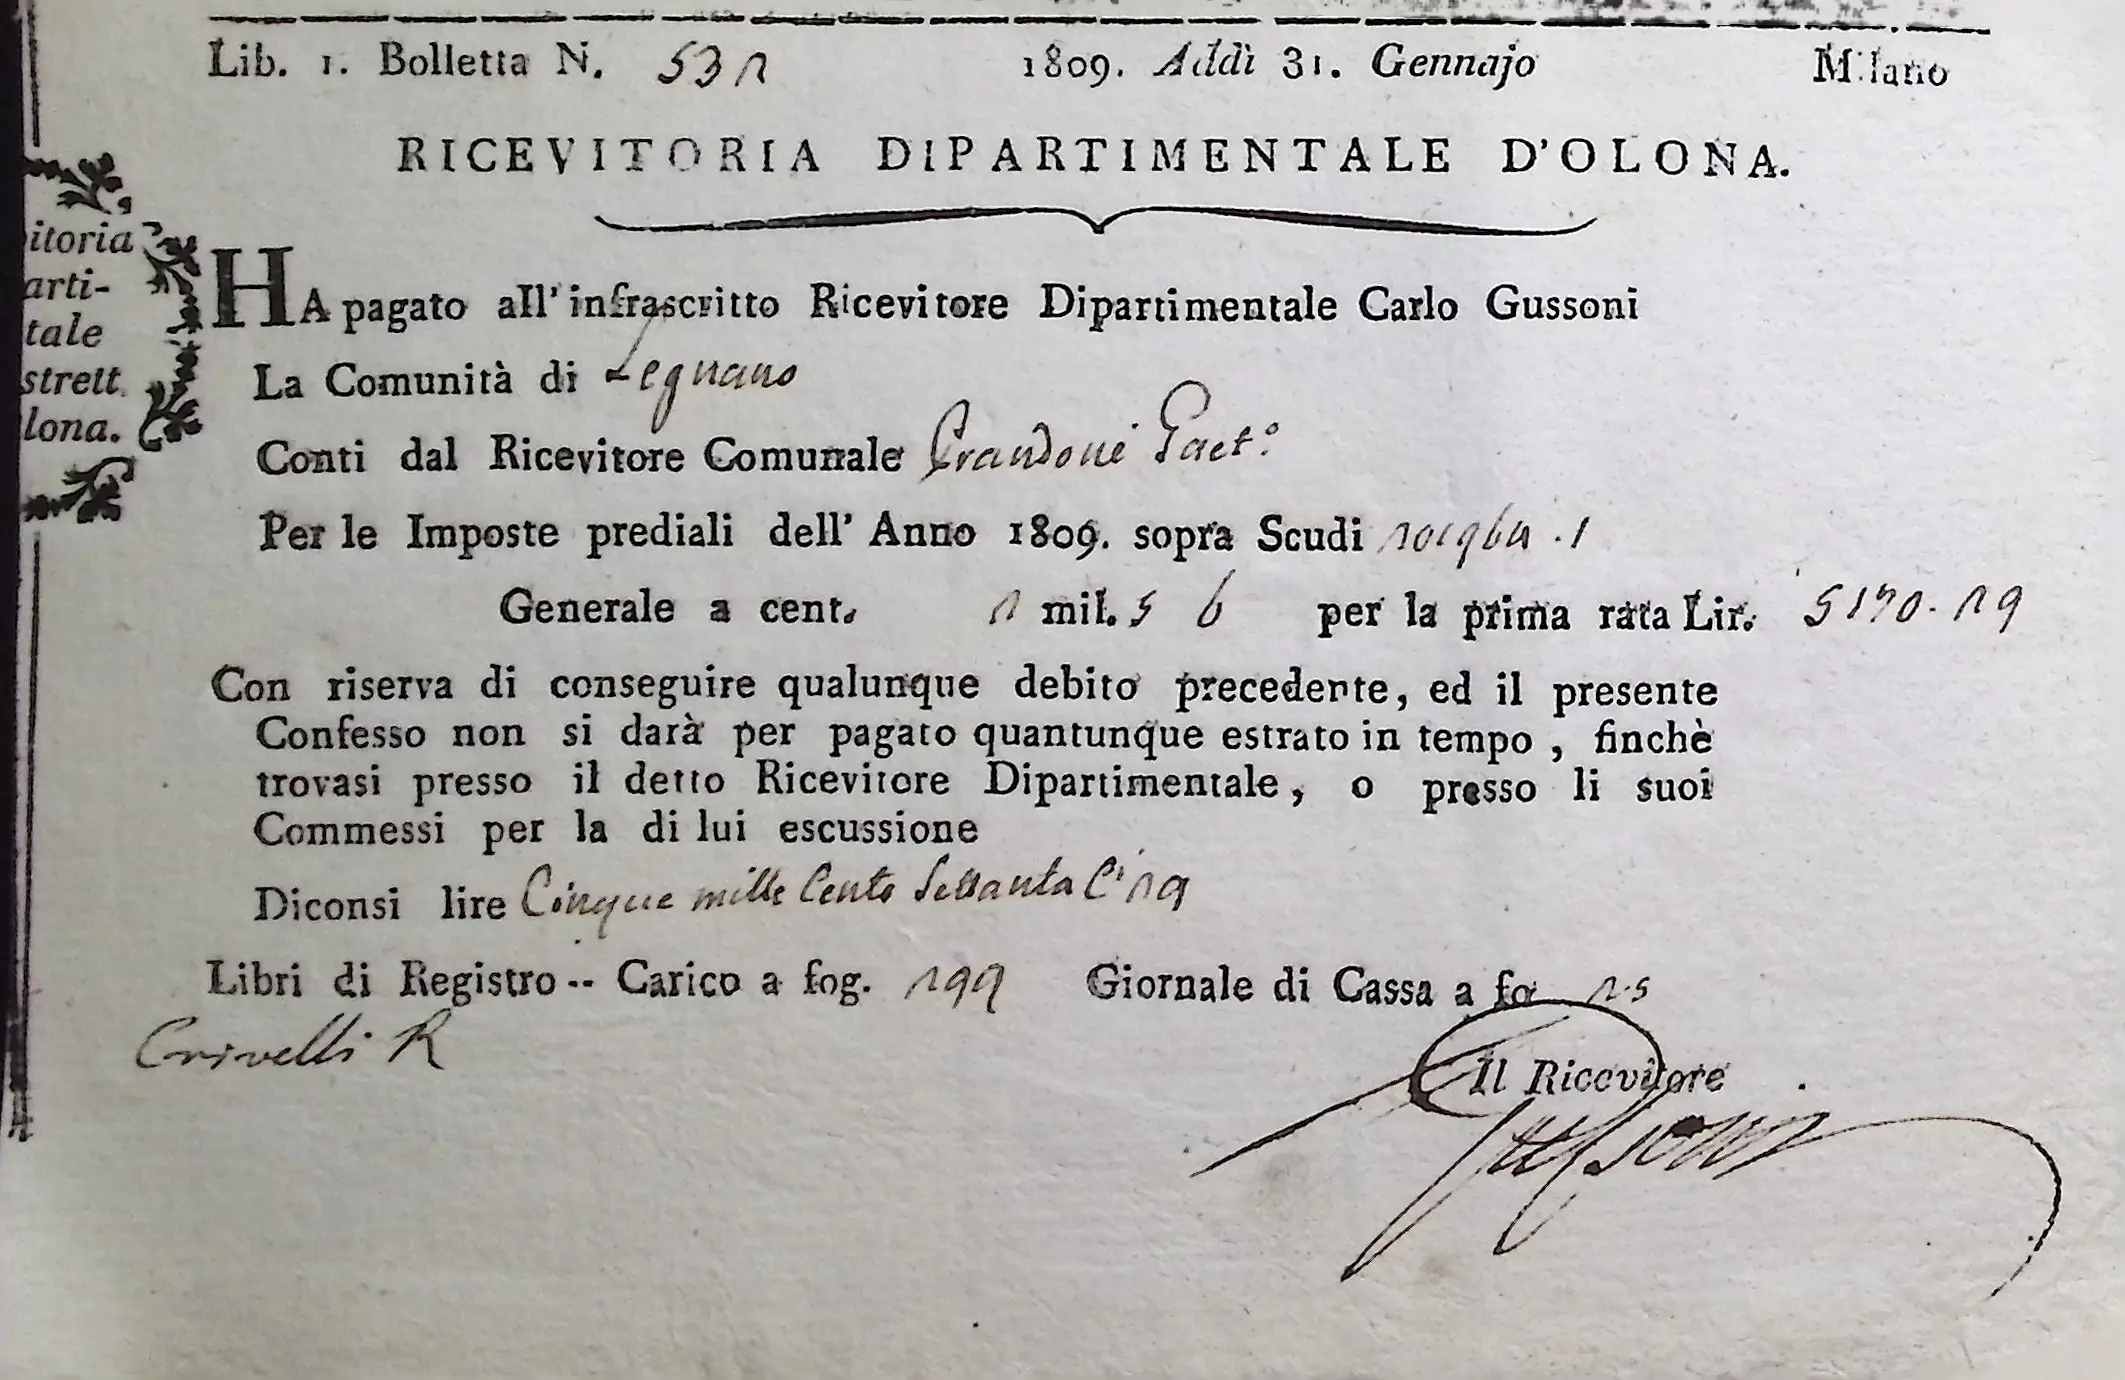 Lib. 1. Bolletta N. 532 1809. Addì 31. Gennajo Milano
RICEVITORIA DIPARTIMENTALE D'OLONA.
itoria
arti-
tale
strett.
lona.
HA pagato all'infrascritto Ricevitore Dipartimentale Carlo Gussoni
La Comunità di Legnano
Conti dal Ricevitore Comunale Grandoni Gaet.º
Per le Imposte prediali dell' Anno 1809. sopra Scudi
Generale a cent. 2 mil. 5 6 per la prima rata Lir. 5170. 29
Con riserva di conseguire qualunque debito precedente, ed il presente
Confesso non si darà per pagato quantunque estrato in tempo, finchè
trovasi presso il detto Ricevitore Dipartimentale, o presso li suoi
Commessi per la di lui escussione
Diconsi lire Cinque mille Cento Settanta
Libri di Registro -- Carico a fog. 299 Giornale di Cassa a fo 25
Crivelli R
Il Ricevitore
Gussoni